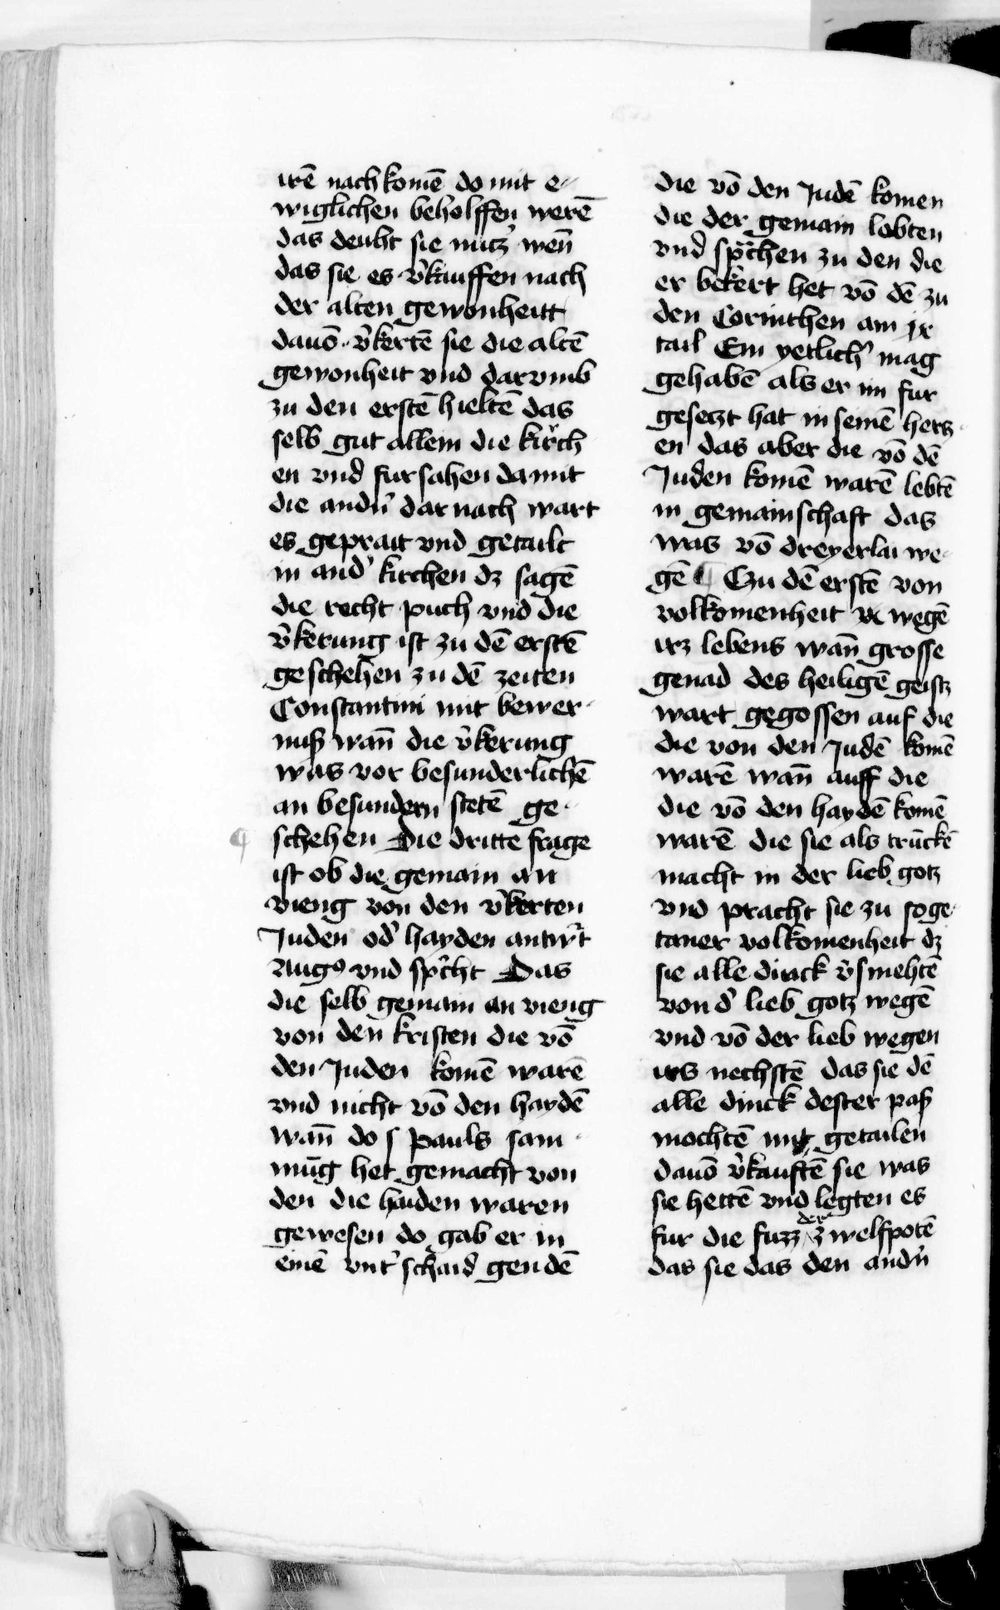 irē nachkomē do mit e-
wiglichen beholffen werē
das deuht sie nutz' wen̄
das sie es v̓kauffen nach
der alten gewonheitt
dauō v̓kertē sie die altē
gewonheit vnd darvmb
zu den erstē hieltē das
selb gut allein die kirch
en vnd fursahen damit
die andn̓ darnach wart
es geprait vnd getailt
in and' kirchen dz sagē
die recht puch vnd die
v̓kerung ist zu dē erstē
geschehen zu dē zeiten
Constantini mit bewer-
nuß wan̄ die v̓kerung
was vor besunderlichē
an besundern stetē ge-
schehen Die dritte frage
ist ob die gemain an
vieng von den v̓kerten
Juden od' hayden antw̓t
Augꝰ vnd sp̓cht Das
die selb gemain an vieng
von den kristen die vō
den Juden komē warē
vnd nicht vō den haydē
wan̄ do s pauls sam-
mūg het gemacht von
den die haiden waren
gewesen do gab er in
einē vnt' schaid gen dē
die vō den Judē komen
die der gemain lebten
vnd sp̓chen zu den die
er bekert het vō dē zu
den Corinthen am ix
tail Ein yetlich' mag
gehabē als er im fur
gesetzt hat in seinē hertz-
en das aber die vō dē
Juden komē warē lebtē
in gemainschaft das
was vō dreyerlai we-
gē ¶ Czu dē erstē von
volkomenheit wegē
irz lebens wan̄ grosse
genad des heiligē geistz
wart gegossen auf die
die von den Judē komē
warē wan̄ auff die
die vō den haydē komē
warē die sie als trūckē
macht in der lieb gotz
vnd pracht sie zu soge-
taner volkomenheit dz
sie alle dinck v̓smehtē
von d' lieb gotz wegē
vnd vō der lieb wegen
irs nechstē das sie dē
alle dinck dester paß
mochtē mit getailen
dauō v̓kauftē sie was
sie hettē vnd legten es
fur die fuzz der zwelfpotē
das sie das den andn̓